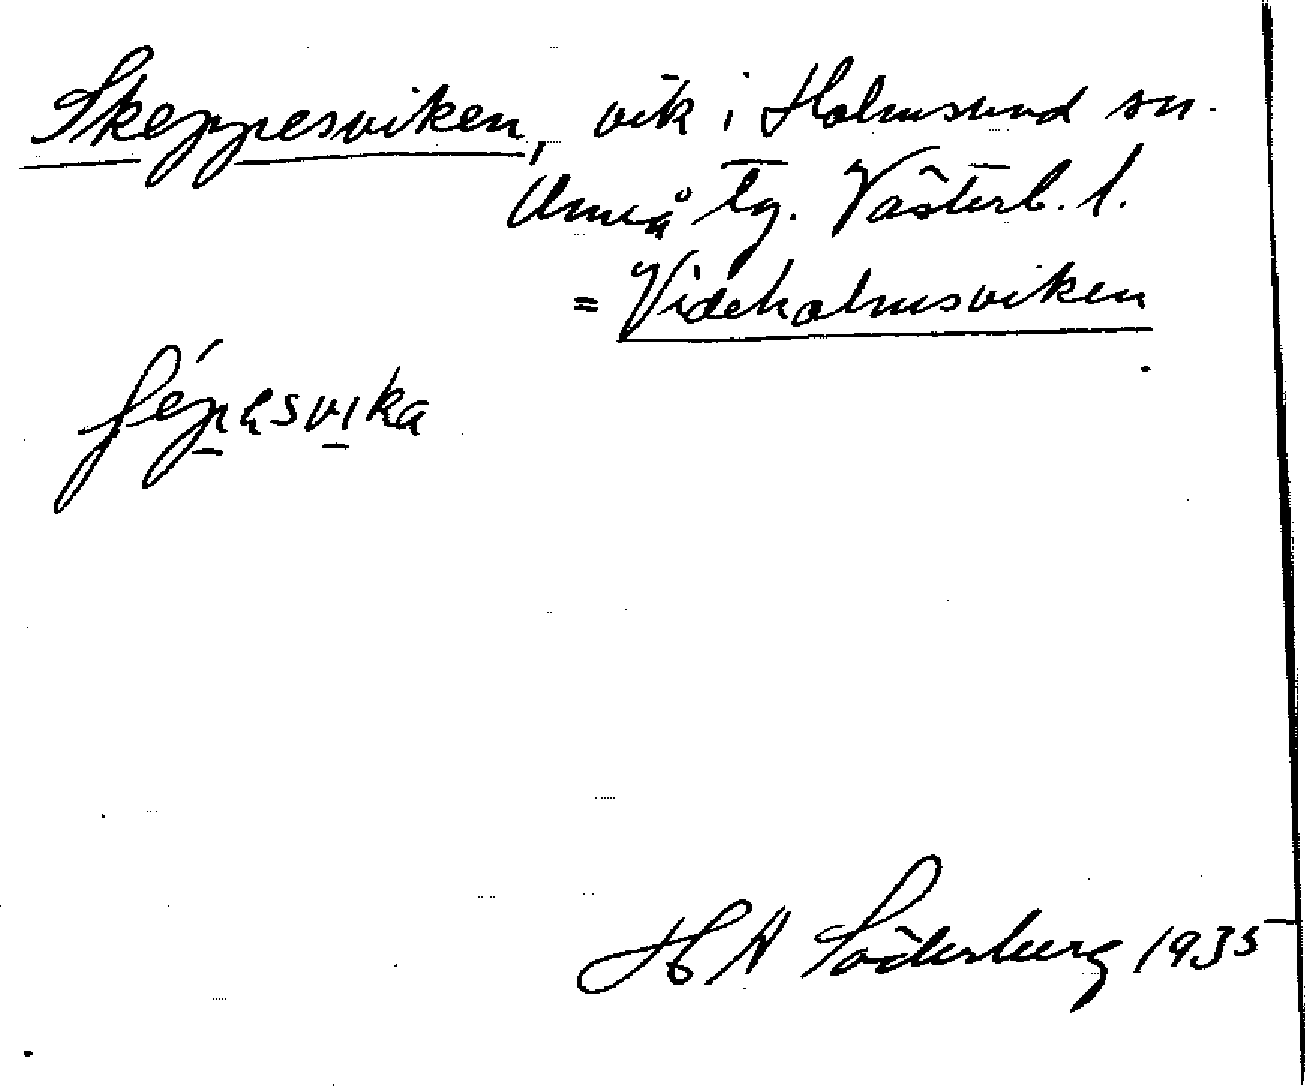 Skeppesviken, vik i Holmsund sn.
Umeå tg. Västerb. l.
= Videholmsviken
H A Söderberg 1935